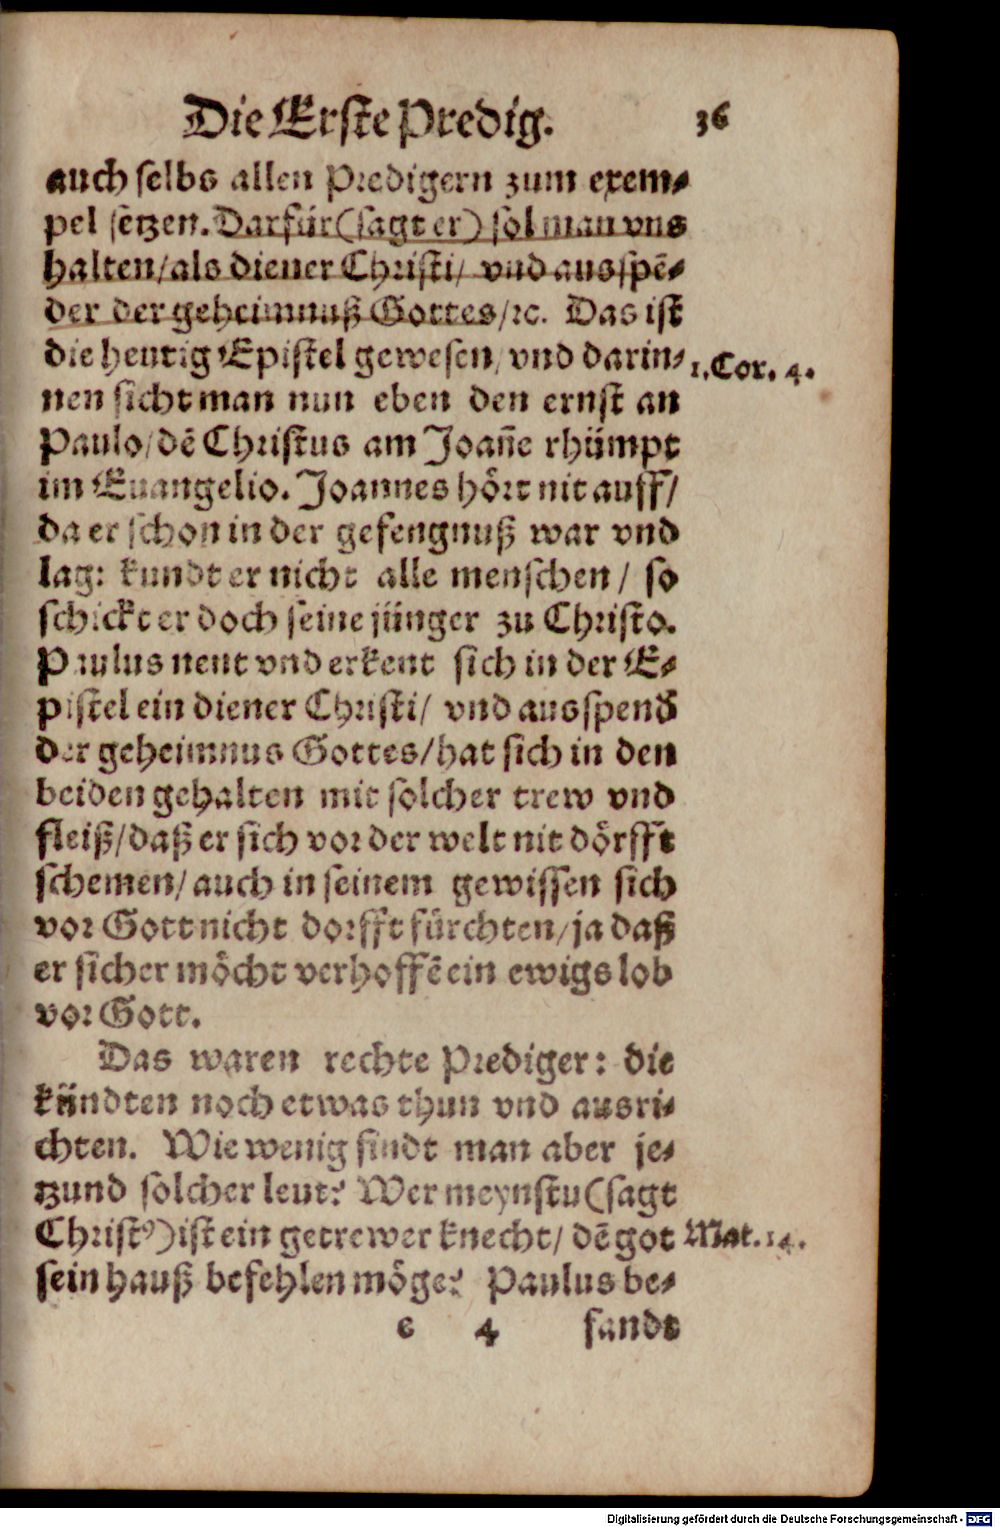 Die Erste Predig. 36
auch selbs allen Predigern zum exem⸗
pel setzen. Darfür (sagt er) sol man vns
halten/ als diener Christi/ vnd ausspē⸗
der der geheimnuß Gottes/ ꝛc. Das ist
die heutig Epistel gewesen/ vnd darin⸗
1. Cor. 4.
nen sicht man nun eben den ernst an
Paulo/ dē Christus am Joañe rhümpt
im Euangelio. Joannes hört nit auff/
da er schon in der gefengnuß war vnd
lag: kundt er nicht alle menschen/ so
schickt er doch seine jünger zu Christo.
Paulus nent vnd erkent sich in der E⸗
pistel ein diener Christi/ vnd ausspend
der geheimnus Gottes/ hat sich in den
beiden gehalten mit solcher trew vnd
fleiß/ daß er sich vor der welt nit dörfft
schemen/ auch in seinem gewissen sich
vor Gott nicht dorfft fürchten/ ja daß
er sicher möcht verhoffē ein ewigs lob
vor Gott.
Das waren rechte Prediger: die
kündten noch etwas thun vnd ausri⸗
chten. Wie wenig findt man aber je⸗
tzund solcher leut? Wer meynstu (sagt
Christꝰ) ist ein getrewer knecht/ dē got
Mat. 14.
sein hauß befehlen möge? Paulus be⸗
e 4 fandt
Digitalisierung gefördert durch die Deutsche Forschungsgemeinschaft - DFG